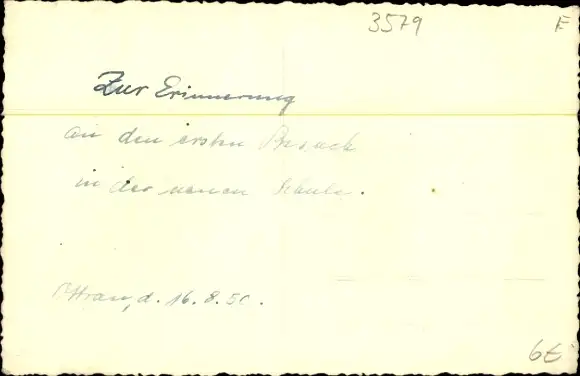 3579 F
Zur Erinnerung
an den ersten Besuch
in der neuen Schule.
d. 16.8.50.
6€